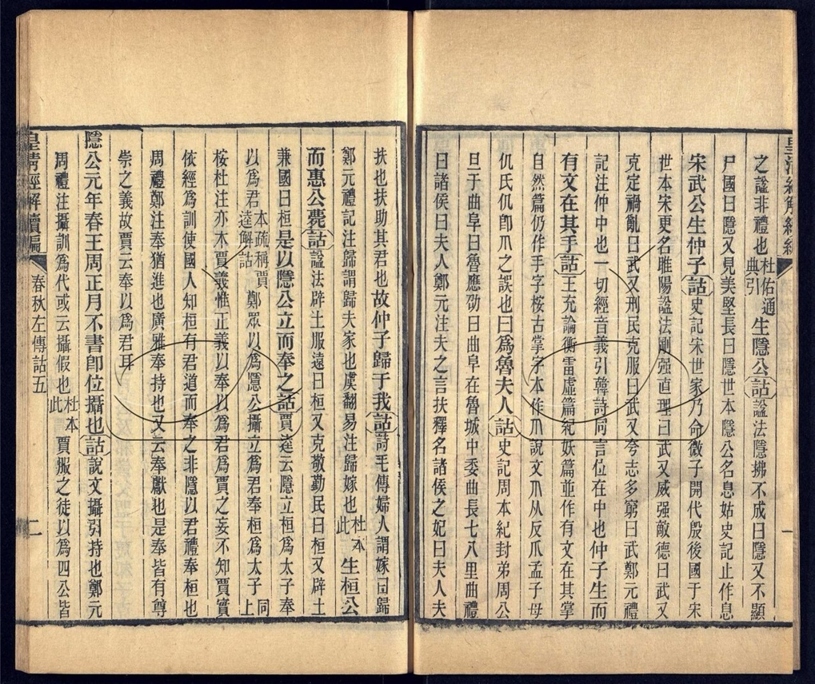 之諡非禮也杜佑通典引生隱公詁諡法隱拂不成曰隱又不顯
尸國曰隱又見美堅長曰隱世本隱公名息姑史記止作息
宋武公生仲子詁史記宋世家乃命微子開代殷後國于宋
世本宋更名睢陽諡法剛强直理曰武又威强敵德曰武又
克定禍亂曰武又刑民克服曰武又夸志多窮曰武鄭元禮
記注仲中也一切經音義引韓詩同言位在中也仲子生而
有文在其手詁王充論衡雷虛篇紀妖篇並作有文在其掌
自然篇仍作手字桉古掌字本作爪說文爪从反爪孟子母
仉氏仉卽爪之誤也曰爲魯夫人詁史記周本紀封弟周公
旦于曲阜曰魯應劭曰曲阜在魯城中委曲長七八里曲禮
曰諸侯曰夫人鄭元注夫之言扶釋名諸侯之妃曰夫人夫
扶也扶助其君也故仲子歸于我詁詩毛傳婦人謂嫁曰歸
鄭元禮記注歸謂歸夫家也虞翻易注歸嫁也杜本此生桓公
而惠公薨詁諡法辟土服遠曰桓又克敬勤民曰桓又辟土
兼國曰桓是以隱公立而奉之詁賈逵云隱立桓爲太子奉
以爲君本疏稱賈逵解詁鄭眾以爲隱公攝立爲君奉桓爲太子同上
桉杜注亦本賈義惟正義以奉以爲君爲賈之妄不知賈實
依經爲訓使國人知桓有君道而奉之非隱以君禮奉桓也
周禮鄭注奉猶進也廣雅奉持也又云奉獻也是奉皆有尊
崇之義故賈云奉以爲君耳
隱公元年春王周正月不書卽位攝也詁說文攝引持也鄭元
周禮注攝訓爲代或云攝假也杜本此賈服之徒以爲四公皆
皇淸經解續編
春秋左傳詁五
二